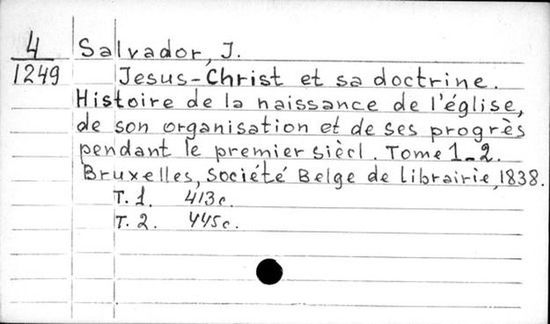 4 Salvador, J.
1249 Jesus-Christ et sa doctrine.
Histoire de la naissance de l'église,
de son organisation et de ses progrès
pendant le premier siècl. Tome 1-2.
Bruxelles, Société Belge de librairie, 1838.
T. 1. 413c.
T. 2. 445c.